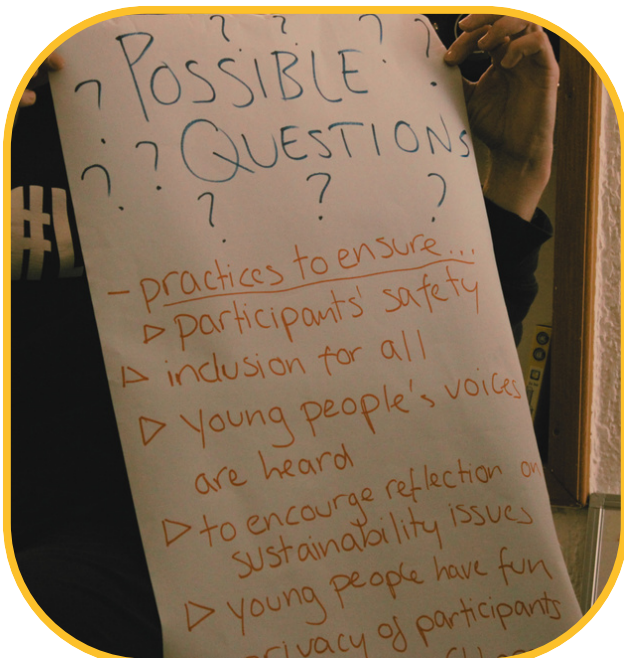 ? ? ? ?
? POSSIBLE ?
? ? QUESTIONS
? ? ?
- practices to ensure...
▷ participants' safety
▷ inclusion for all
▷ young people's voices
are heard
▷ to encourge reflection on
sustainability issues
▷ young people have fun
privacy of participants
#L